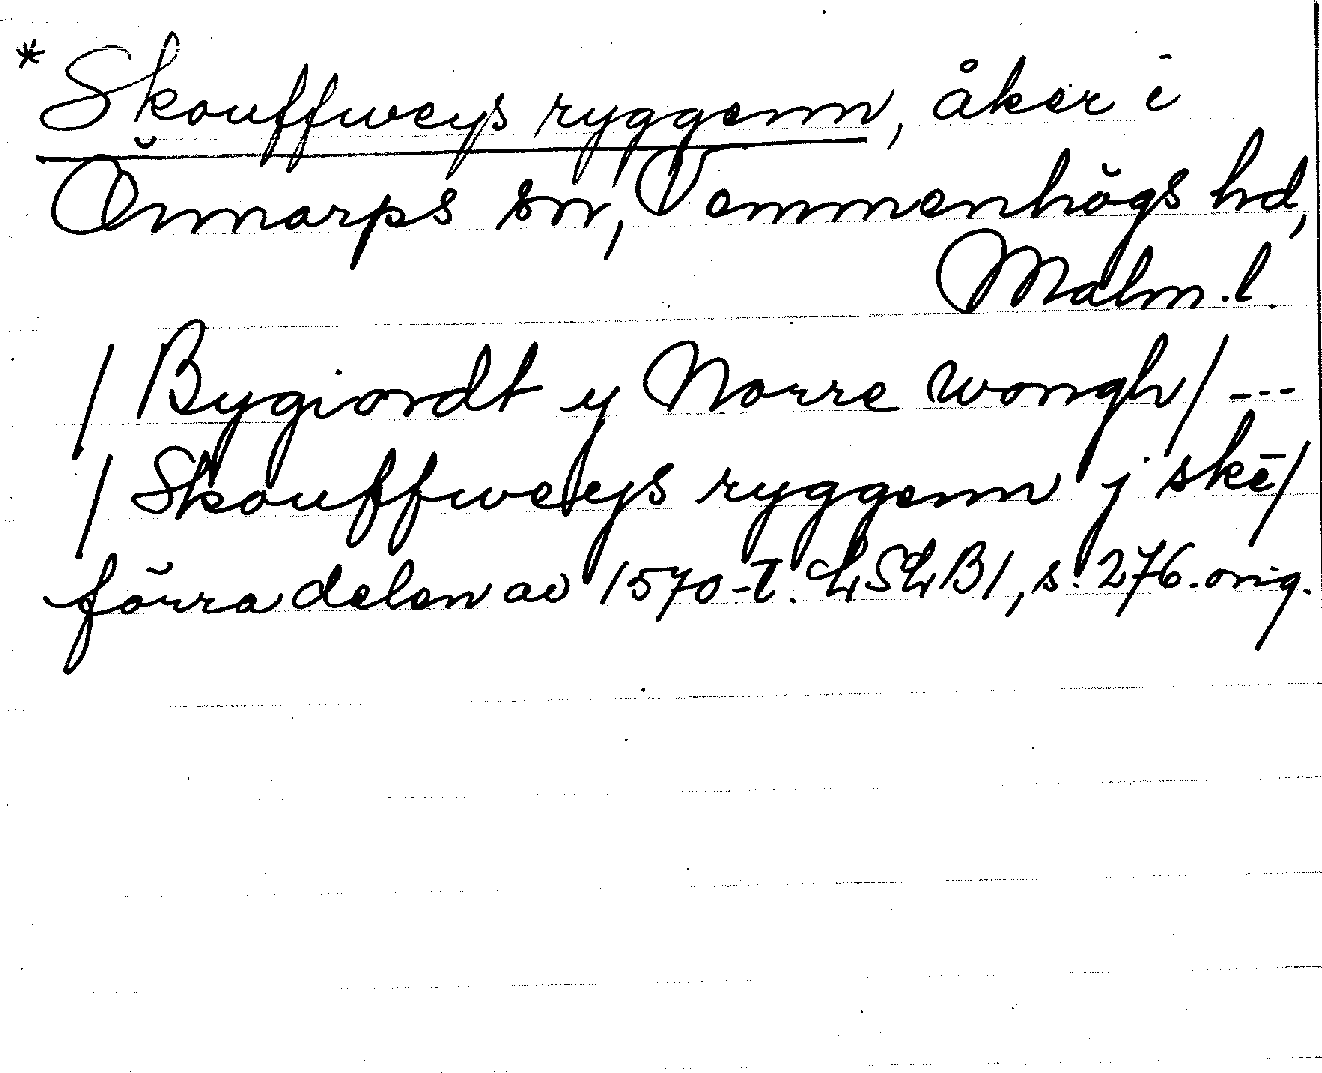 * Skouffweys ryggenn, åker i
Önnarps sn, Vemmenhögs hd,
Malm. l.
/ Bygiordt y Norre wongh / ---
/ Skouffweys ryggenn j skē /
förra delen av 1570-t. LSLB1, s. 276. orig.